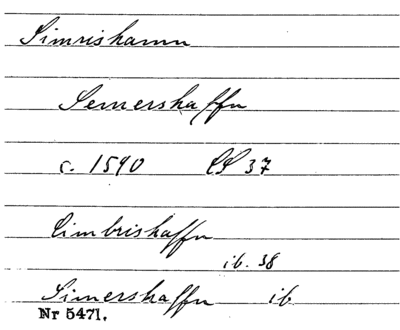 Simrishamn
Semershaffn
c. 1590 37
Cimbrishaffn
ib. 38
Simershaffn ib
Nr 5471.